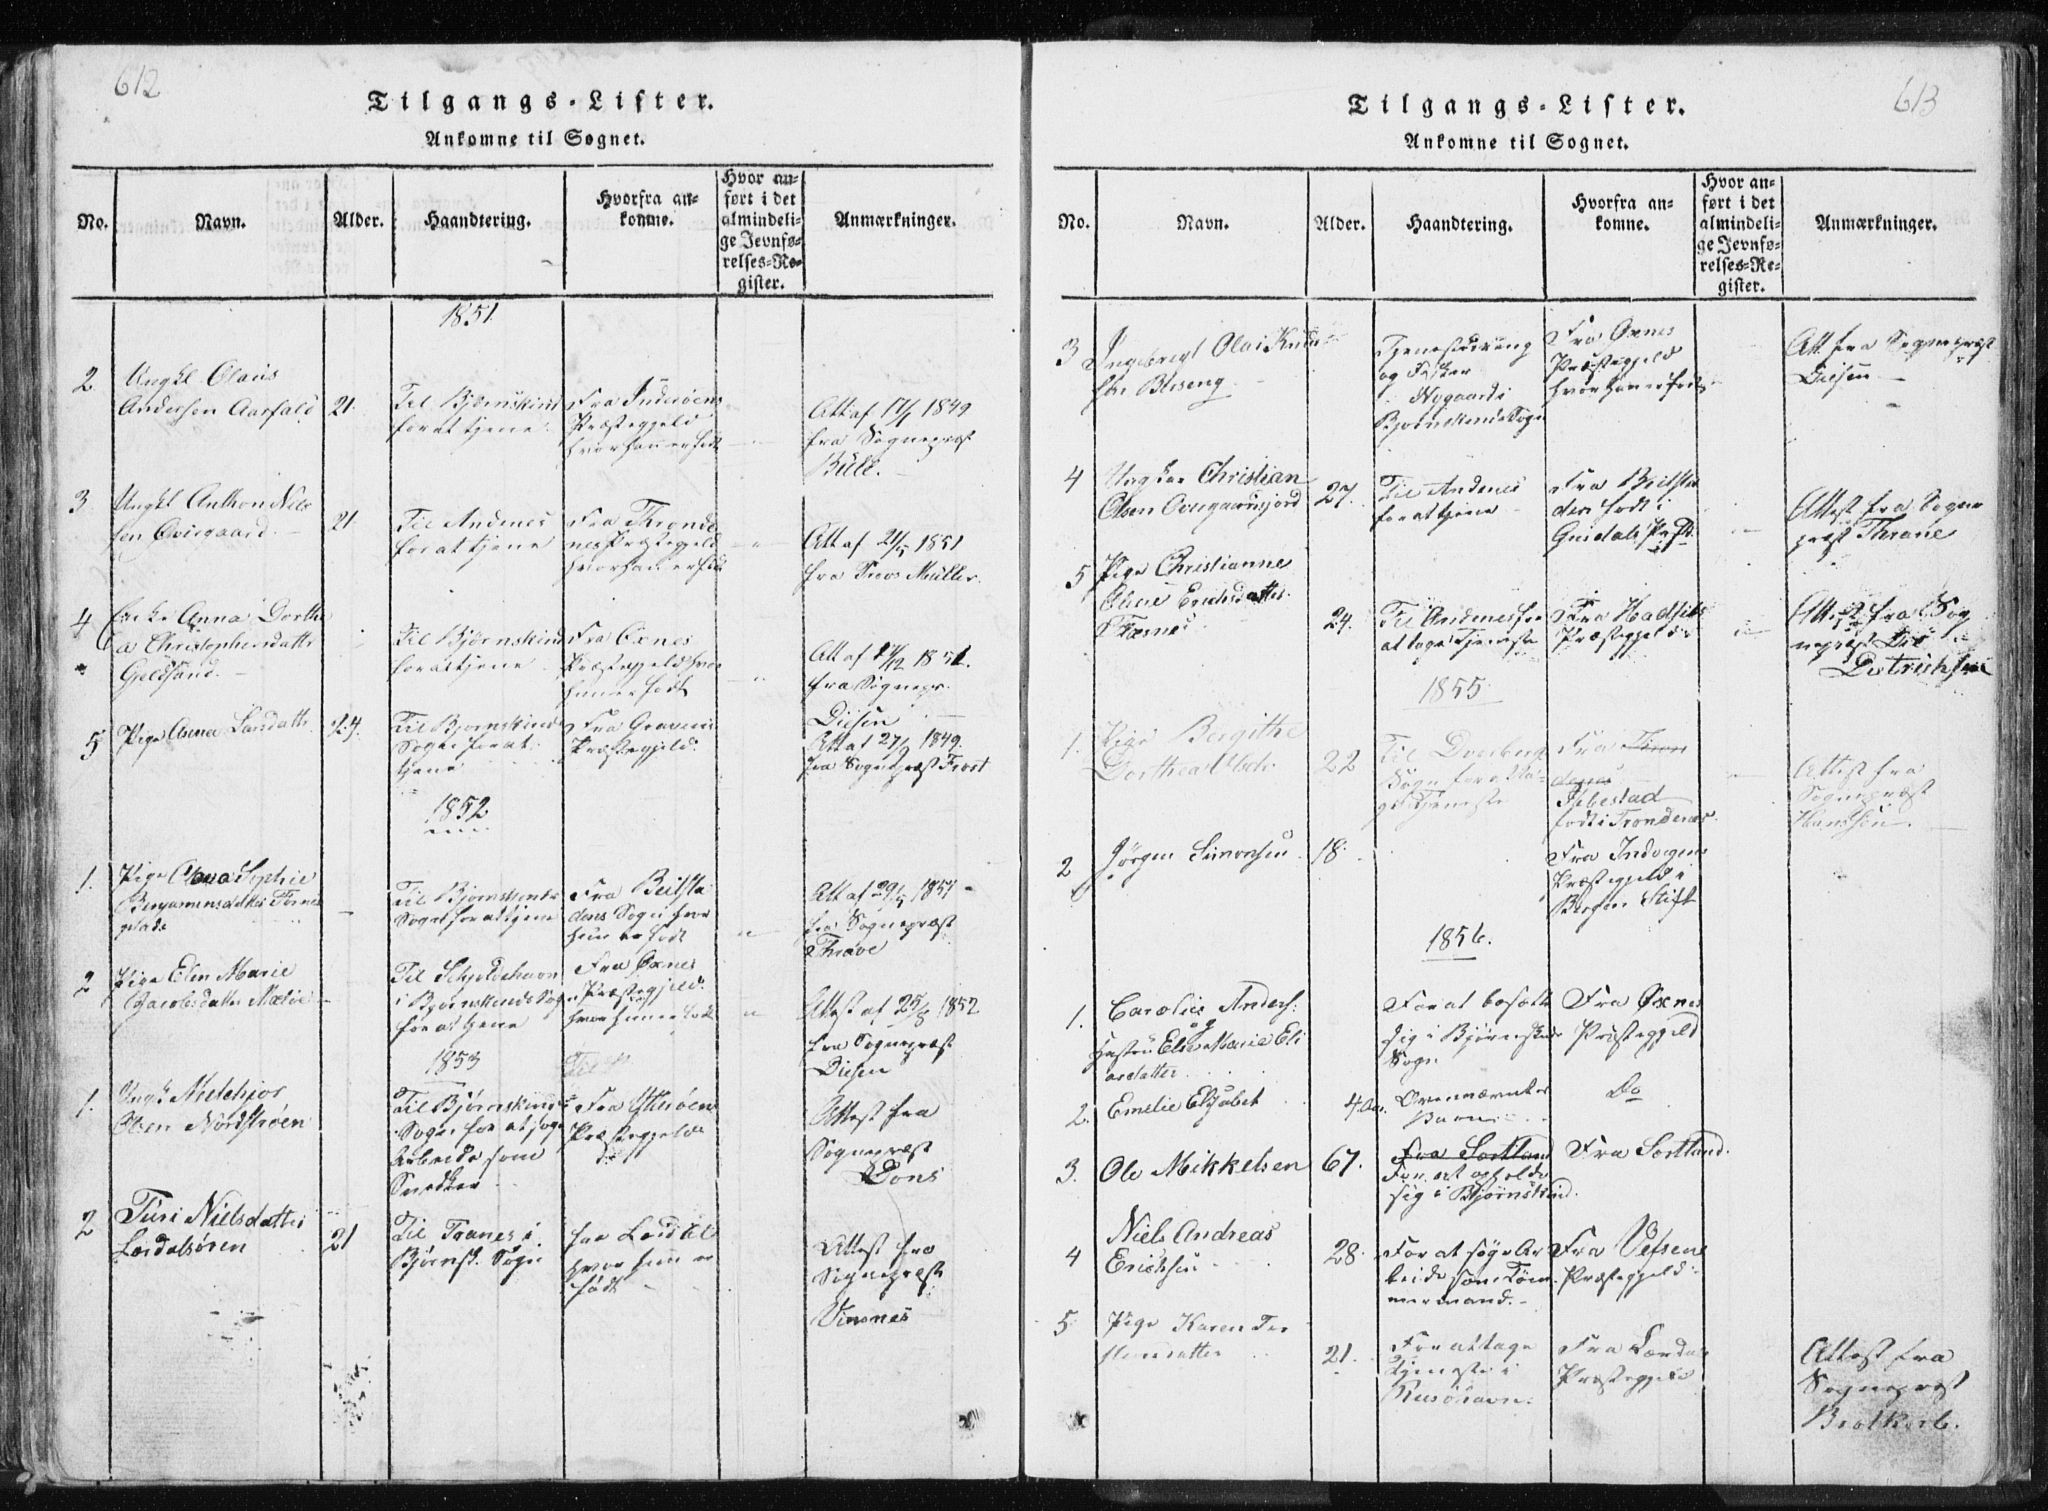 612
Tilgangs-Lister.
Ankomne til Sognet.
No. Navn. Alder. Haandtering. Hvorfra ankomne. Hvor anført i det almindelige Jevnførelses-Register. Anmærkninger.
1851
2 Ungkl Olaus
Andersen Aarfald 21.
Til Bjørnskind
for at tjene.
Fra Inderøens
Præstegjeld
hvor han er født
Att af 17/5 1849
fra Sognepræst
Bull.
3 Ungkl Anthon Niel
sen Qvirgaard. 21
Til Andenes
for at tjene
Fra Thronde
nes Præstegjeld
hvor han er født
Att af 21/5 1851
fra Müller.
4 Anna Dorthe
a Christophersdattr
Gjeldsand.
Til Bjørnskind
for at tjene.
Fra Øxnes
Præstegjeld hvor
hun er født
Att af 1851.
fra Sognepr.
Diesen
5 Pige Anna Larsdattr 24.
Til Bjørnskind
Sogn for at
tjene
Fra
Præstegjeld.
Att af 27/9 1849.
fra Sognepræst Frost
1852
1. Pige Anna Sophie
Benjaminsdatter
Til Bjørnskinds
Sogn for at tjene
Fra Beitsta
dens Sogn hvor
hun er født
Att af 29/5 1851
fra Sognepræst
Thrane
2 Pige Elen Marie
Jacobsdatter
Til Skjoldehavn
i Bjørnskinds Sogn
for at tjene
Fra Øxnes
Præstegjeld.
hvor hun er født
Attest af 25/8 1852
fra Sognepræst
Diesen
1853
1. Ungk Melchjor
Olsen Nordstrøen
Til Bjørnskinds
Sogn for at søge
Arbeide som
Snedker
Fra Ytterøens
Præstegjeld
Attest fra
Sognepræst
Dons
2 Turi Nielsdatter
Lærdalsøren 21
Til Tranes i
Bjørnsk. Sogn
fra Lærdal
hvor hun er
født
Attest fra
Sognepræst
Vinsnes
613
Tilgangs-Lister.
Ankomne til Sognet.
No. Navn. Alder. Haandtering. Hvorfra ankomne. Hvor anført i det almindelige Jevnførelses-Register. Anmærkninger.
3 Ingebregt Olai Knud
sen Bleseng
Tjenestedreng
og Fisker
Nygaard i
Bjørnskinds Sogn
Fra Øxnes
Præstegjeld
hvor han er født
Att fra Sognepræst
Diesen
4 Ungkar Christian
Olsen 27.
Til Andenes
for at tjene
Fra Beitsta
den født i
Attest fra Sogne
præst Thrane
5 Pige Christianne
Oline Erichsdatter
24.
Til Andenes for
at tage Tjeneste
Fra Hadsels
Præstegjeld
Attest fra Sog
nepræst
Dietrichson
1855
1. Pige Bergithe
Dorthea 22
Til Dverberg
Sogn for at ta
ge Tjeneste
Fra Tron
denes
Ibbestad
født i Trondenes
Attest fra
Sognepræst
Hanssen
2 Jørgen Simonsen 18.
Fra Indvigens
Præstegjeld i
Bergen Stift
1856.
1. Carolius Anders:
og
Hustru Else Marie Eli
asdatter
For at bosætte
sig i Bjørnskinds
Sogn
Fra Øxnes
Præstegjeld
2. Emelie Elisabet 4 Aar.
Ovennævntes
Barn
Do
3. Ole Mikkelsen 67.
Fra Sortland
For at opholde
sig i Bjørnskind.
Fra Sortland.
4 Niels Andreas
Erichsen 28.
For at søge Ar
beide som Töm
mermand.
Fra Vefsens
Præstegjeld
5 Pige Karen Tor
stensdatter 21.
For at tage
Tjeneste i
Risøhavn.
Fra Lærdals
Præstegjeld
Attest fra
Sognepræst
Brotkorb.